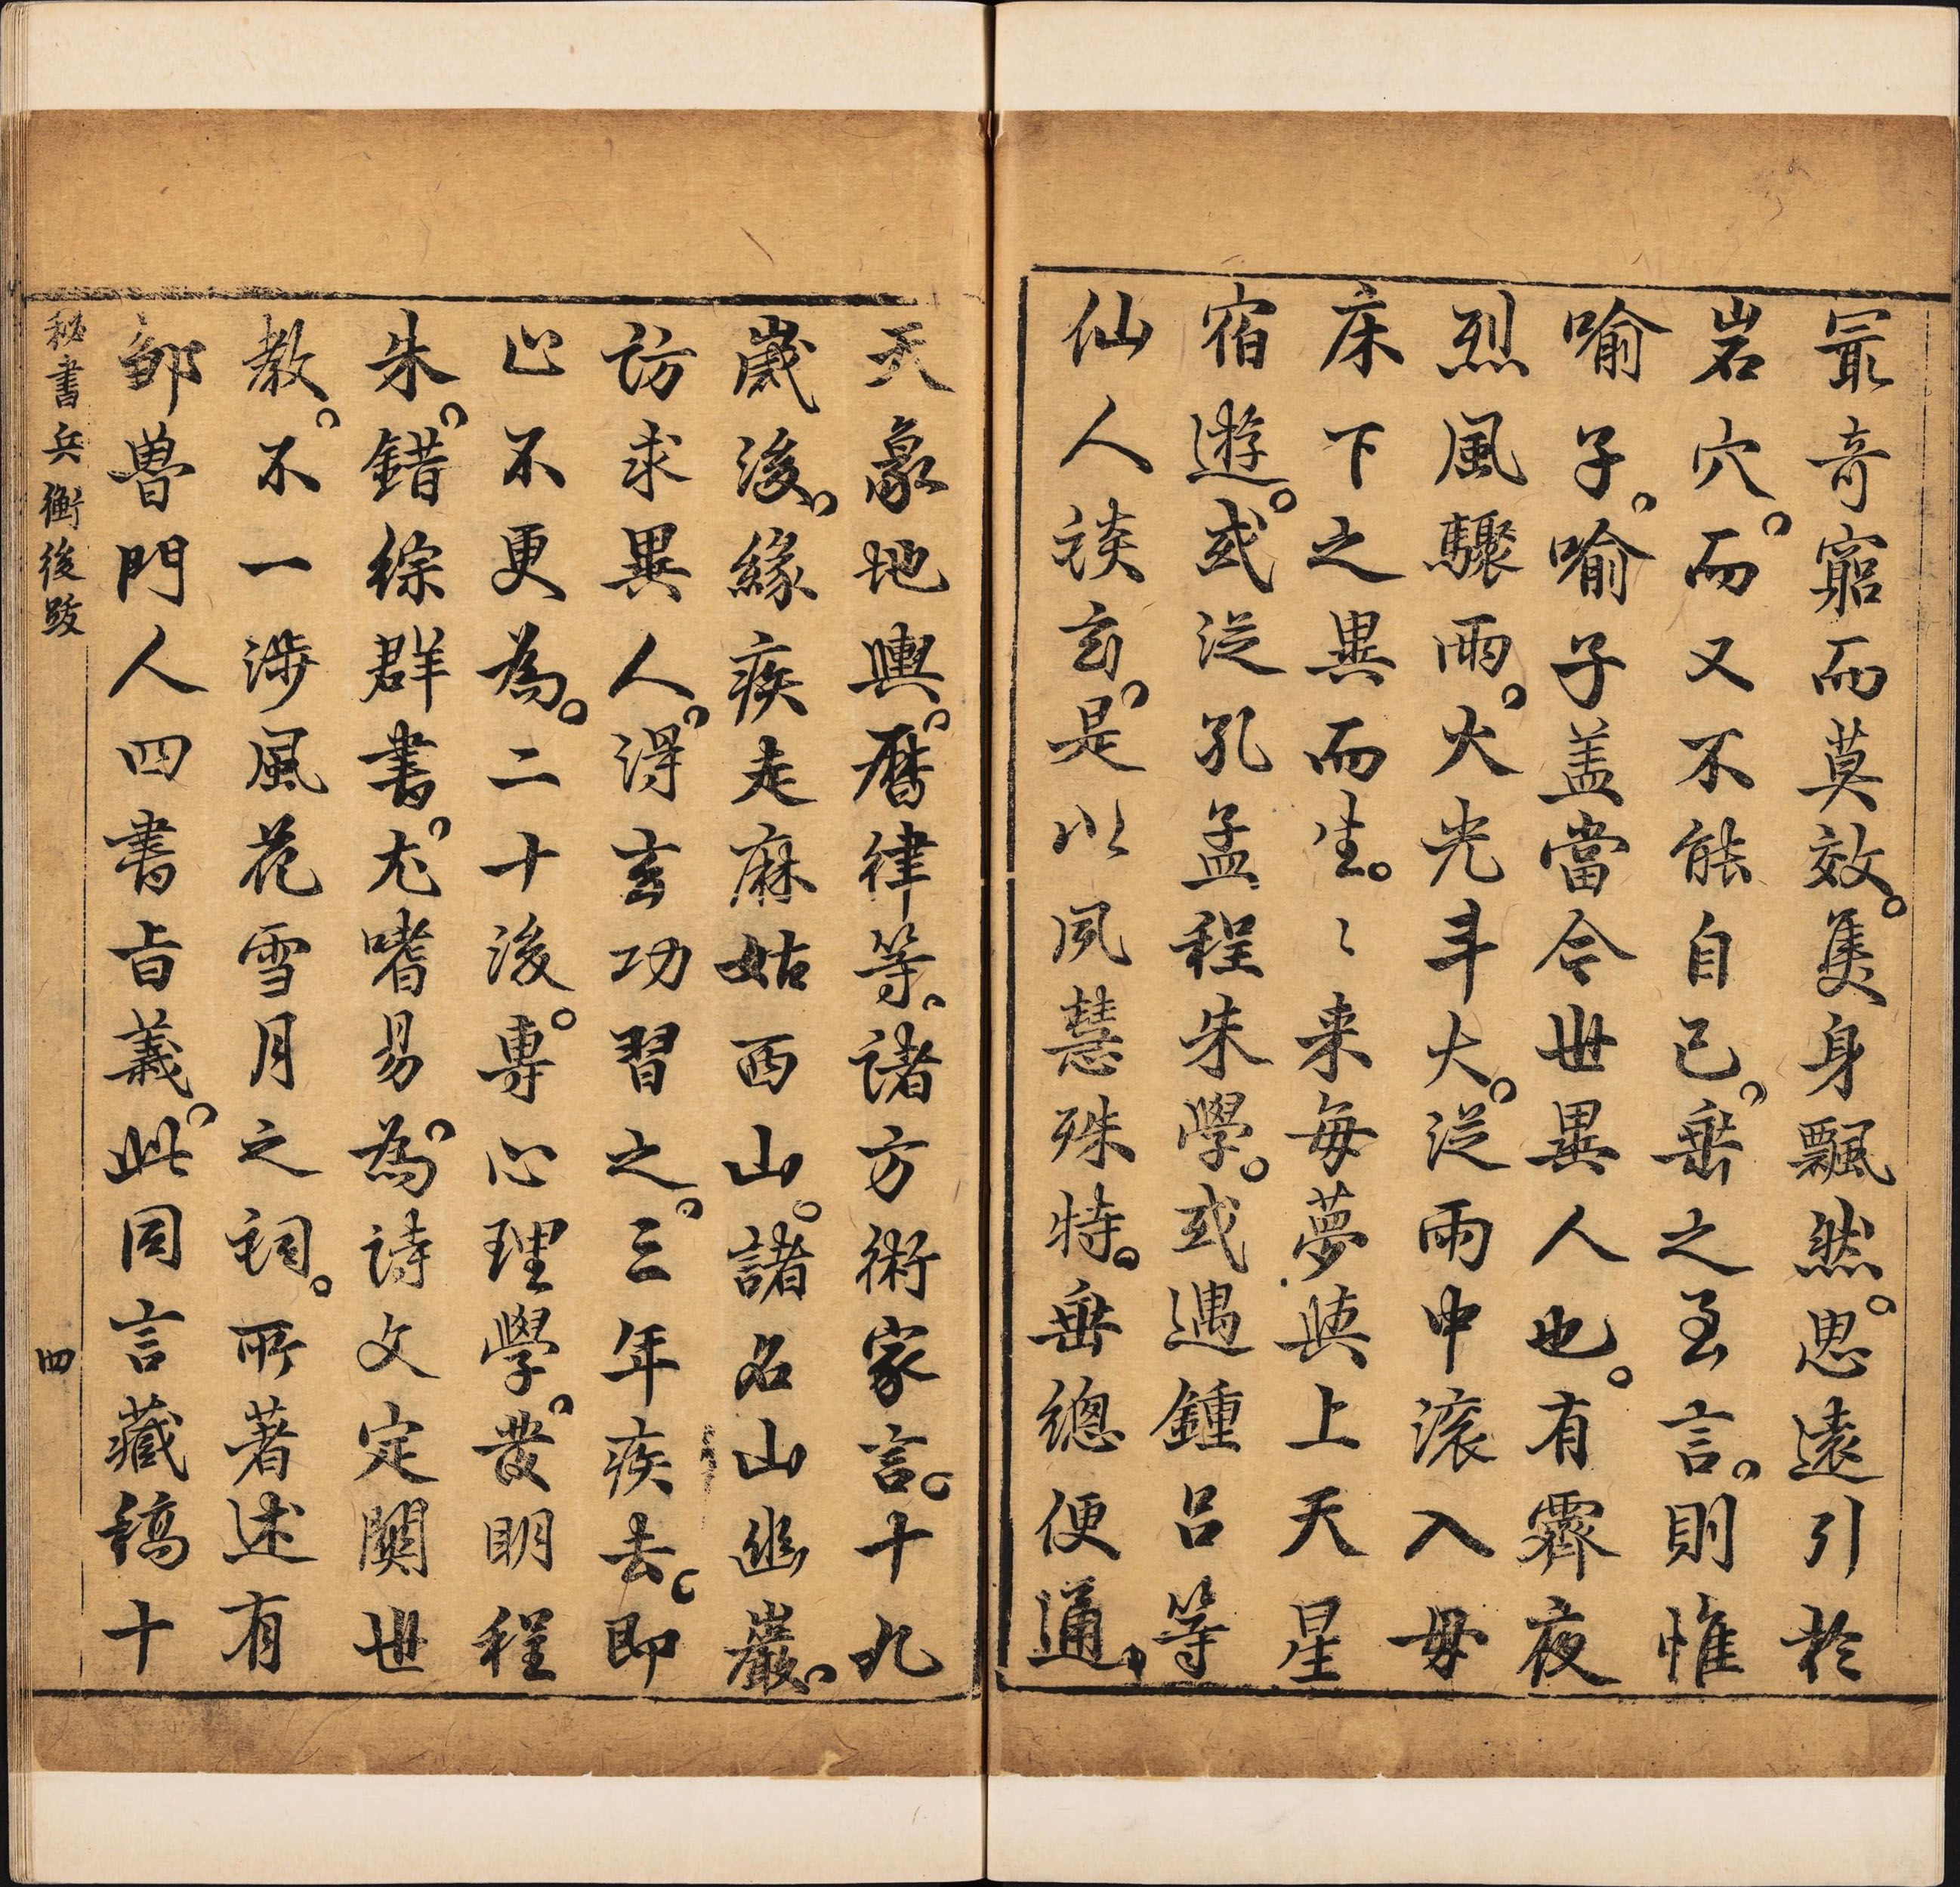 冣奇窮而莫效。隻身飄然。思遠引於
岩穴。而又不能自已。垂之至言。則惟
喻子。喻子盖當今世異人也。有霽夜
烈風驟雨。火光斗大。从雨中滚入毋
床下之異而生。〻来每夢與上天星
宿遊。或从孔孟程朱學。或遇鍾呂等
仙人談玄。是以夙慧殊特。垂總便通。
天象地輿。曆律等。諸方術家言。十九
歲後。緣疾走麻姑西山。諸名山幽巖。
訪求異人。得玄功習之。三年疾去。即
止不更為。二十後。專心理學。發明程
朱。錯綜群書。尤嗜易。為詩文定關世
教。不一涉風花雪月之詞。所著述有
鄒魯門人四書旨義。此同言藏稿十
秘書兵衡後跋 四